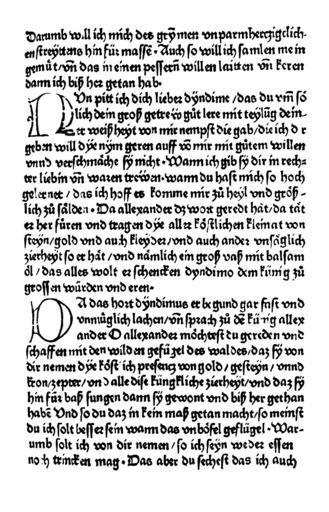 Darumb will ich mich des grymen vnparmhertzigclich-
en streyttens hin für massē. Auch so will ich samlen mein
gemüt/vn̄ das in einen pessern willen laitten vn̄ keren
dann ich biß her getan hab.
NUn pitt ich dich lieber dyndime/das du vm̄ sö
lich dein groß getreẅ güt lere mit teylūg dein-
er weißheyt von mir nempst die gab/die ich d r
geben will dye nym geren auff vō mir mit gütem willen
vnnd verschmäche sy nicht. Wann ich gib sy dir in rech-
ter liebin vn̄ waren treẅen. wann du hast mich so hoch
gelernet/das ich hoff es komme mir zü heyl vnd größ-
lich zü sälden. Da allexander dz wort geredt hät/da tät
er her füren vnd tragen dye aller köstlichen kleinat von
steyn/gold vnd auch kleyder/vnd auch ander vnsäglich
zierheyt so er hät/vnd nämlich ein groß vaß mit balsam
öl/das alles wolt er schencken dyndimo dem künig zü
grossen würden vnd eren.
DA das hort dyndimus er begund gar fast vnd
vnmüglich lachen/vn̄ sprach zü dē künig allex
ander O allexander möchtest du gereden vnd
schaffen mit den wilden gefügel des waldes/daz sy von
dir nemen dye köstlich presencz von gold/gesteyn/vnnd
kron/zepter/vnd alle dise küngkliche zierheyt/vnd daz sy
hin für baß sungen dann sy gewont vnd biß her gethan
habē Vnd so du daz in kein maß getan macht/so meinst
du ich solt besser sein wann das vnböfel geflügel. War-
umb solt ich von dir nemen/so ich seyn weder essen
noch trincken mag. Das aber du sechest das ich auch